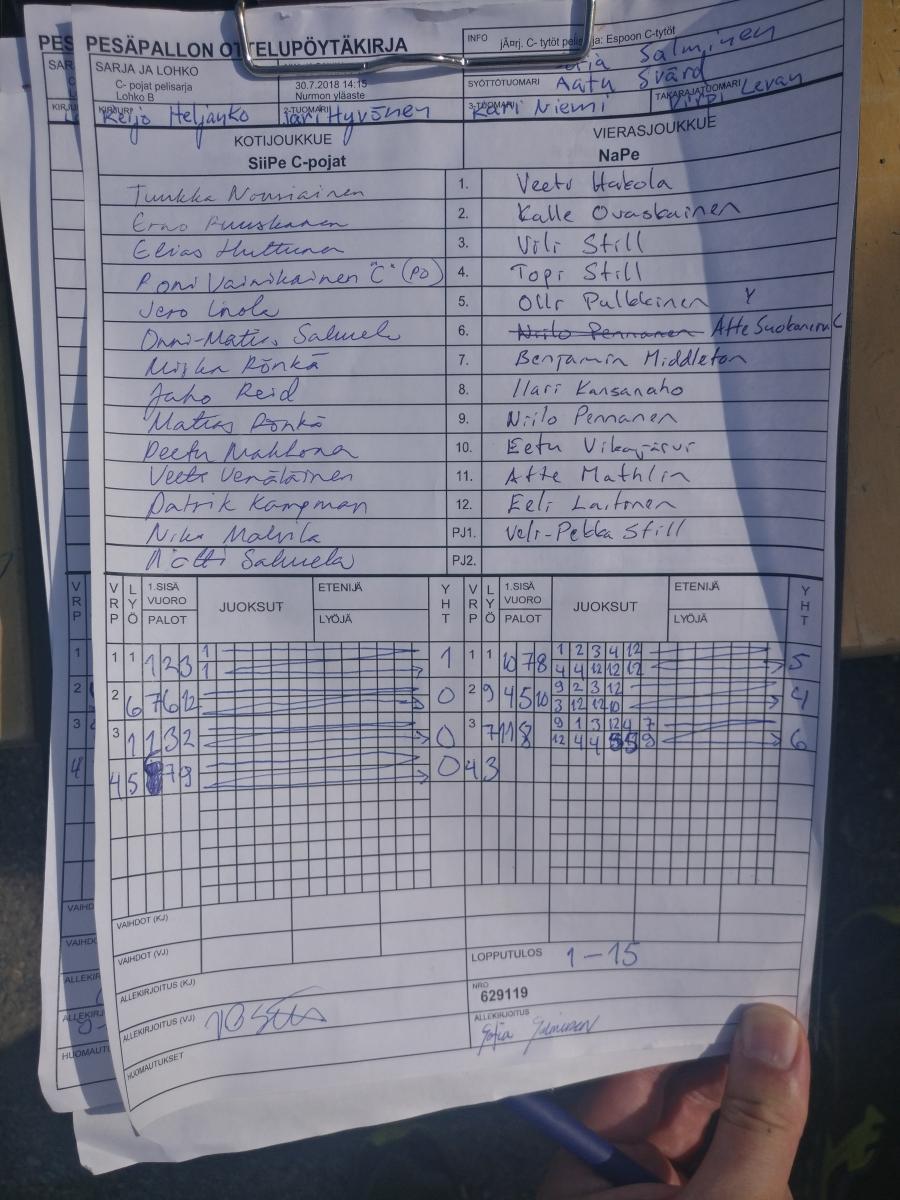 PESÄPALLON OTTELUPÖYTÄKIRJA
INFO
jÃ¤rj. C- tytöt pelisarja: Espoon C-tytöt
SARJA JA LOHKO
C- pojat pelisarja
Lohko B
30.7.2018 14:15
Nurmon yläaste
Salminen
SYÖTTÖTUOMARI Aatu Svärd
KIRJURI Reijo Heljanko
2-TUOMARI Jari Hyvönen
3-TUOMARI Kari Niemi
TAKARAJATUOMARI Pirpi Levan
KOTIJOUKKUE
SiiPe C-pojat
VIERASJOUKKUE
NaPe
Tuukka Nousiainen 1. Veetu Hakola
Eino Puuskanen 2. Kalle Ovaskainen
Elias Huttunen 3. Vili Still
Roni Vainikainen "C" (PD) 4. Topi Still
Jero Linola 5. Olli Pulkkinen Y
Onni-Matias Sahuela 6. Niilo Pennanen Atte Suokanrin C
Miska Rönkä 7. Benjamin Middleton
Juho Reid 8. Ilari Kansanaho
Matias Rönkö 9. Niilo Pennanen
Peetu Makkona 10. Eetu Vikajärvi
Veeti Venäläinen 11. Atte Mathlin
Patrik Kampman 12. Eeli Laitonen
Niko Malvila PJ1. Veli-Pekka Still
Matti Sahuela PJ2.
VRP LYÖ 1.SISÄ VUORO PALOT JUOKSUT ETENIJÄ LYÖJÄ YHT VRP LYÖ 1.SISÄ VUORO PALOT JUOKSUT ETENIJÄ LYÖJÄ YHT
1 1 1 2 3 1 1 1 1 1 10 7 8 1 2 3 4 12 5
4 4 12 12 12
2 6 7 6 12 0 2 9 4 5 10 9 2 3 12 4
3 12 12 10
3 1 1 3 2 0 3 7 11 8 9 1 3 12 4 7 6
12 4 4 5 5 9
4 5 7 9 0 4 3
VAIHDOT (KJ)
VAIHDOT (VJ)
LOPPUTULOS 1-15
ALLEKIRJOITUS (KJ)
NRO
629119
ALLEKIRJOITUS (VJ)
ALLEKIRJOITUS
HUOMAUTUKSET